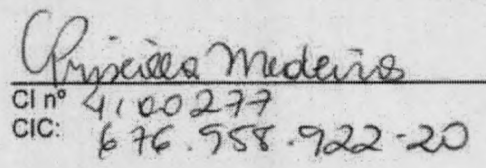 Priscilla Medeiros
CI nº 4.100277
CIC: 676.958.922-20